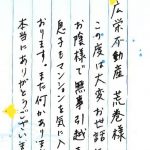 広栄不動産 荒巻様
この度は大変お世話
お陰様で無事引越を
息子もマンションを気に入
おります。また何かありま
本当にありがとうございま